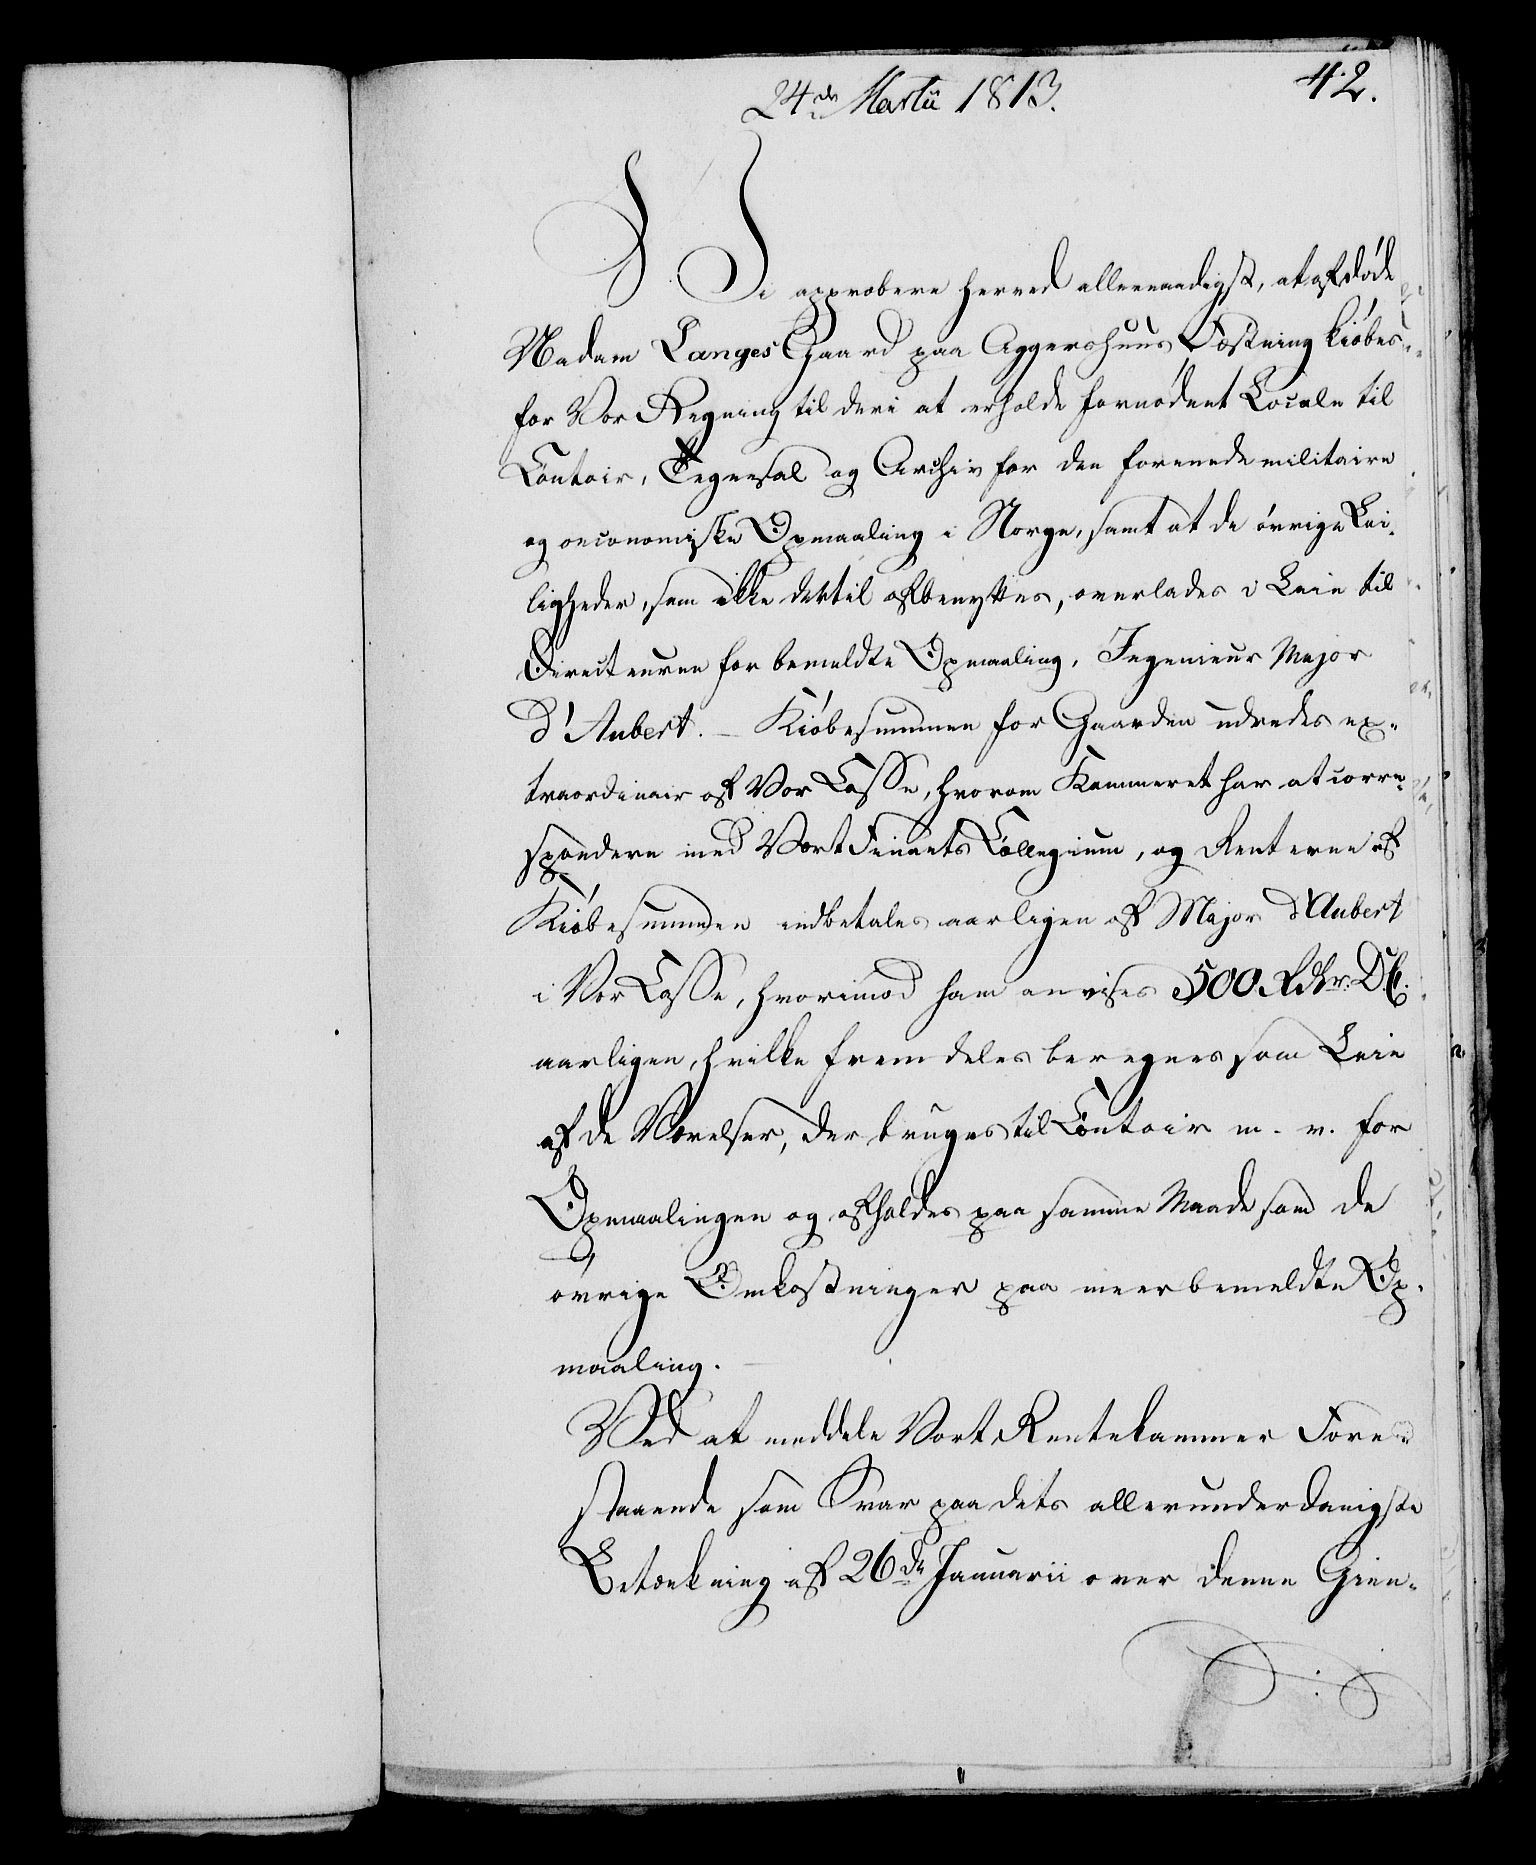 24de Martii 1813.
42.
Vi approbere herved allernaadigst, at afdöde
Madam Langes Gaard paa Aggershuus Fæstning kiöbes
for Vor Regning til deri at erholde fornödent Locale til
Contoir, Tegnesal og Archiv for den forenede militaire
og oeconomiske Opmaaling i Norge, samt at de övrige Lei-
ligheder, som ikke dertil afbenyttes, overlades i Leie til
Directeuren for bemeldte Opmaaling, Ingenieur Major
d'Aubert. – Kiöbesummen for Gaarden udredes ex-
traordinair af Vor Casse, hvorom Kammeret har at corre-
spondere med Vort Finants Collegium, og Renterne af
Kiöbesummen indbetales aarligen af Major d'Aubert
i Vor Casse, hvorimod ham anvises 500 Rdlr. D.C.
aarligen, hvilke fremdeles beregnes som Leie
af de Værelser, der bruges til Contoir m. v. for
Opmaalingen og afholdes paa samme Maade som de
övrige Omkostninger paa meerbemeldte Op-
maaling.
Ved at meddele Vort Rentekammer Fore-
staaende som Svar paa dets allerunderdanigste
Betænkning af 26de Januarii over denne Gien-